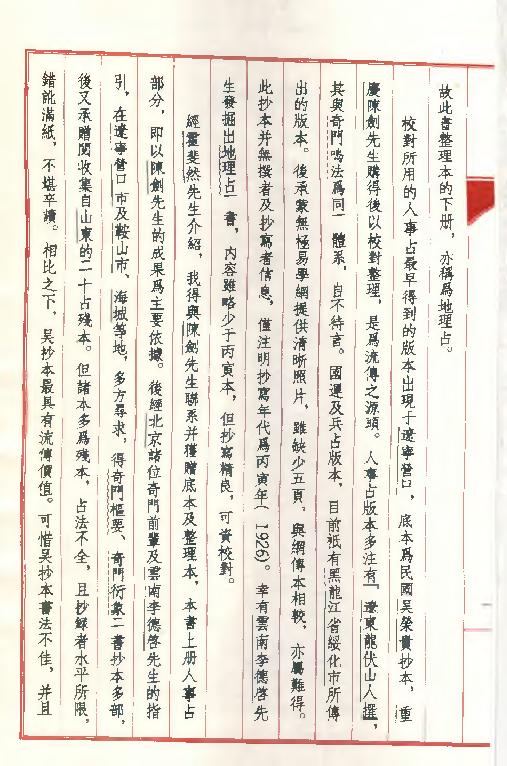 故此書整理本的下册，亦稱爲地理占。
校對所用的人事占最早得到的版本出現于遼寧營口，底本爲民國吴榮貴抄本，重
慶陳劍先生購得後以校對整理，是爲流傳之源頭。人事占版本多注有「遼東龍伏山人撰」，
其與奇門鳴法爲同一體系，自不待言。國運及兵占版本，目前祇有黑龍江省綏化市所傳
出的版本。後承蒙無極易學網提供清晰照片，雖缺少五頁，與網傳本相較，亦屬難得。
此抄本并無撰者及抄寫者信息，僅注明抄寫年代爲丙寅年（1926）。幸有雲南李德啓先
生發掘出地理占一書，内容雖略少于丙寅本，但抄寫精良，可資校對。
經霍斐然先生介紹，我得與陳劍先生聯系并獲贈底本及整理本，本書上册人事占
部分，即以陳劍先生的成果爲主要依據。後經北京諸位奇門前輩及雲南李德啓先生的指
引，在遼寧營口市及鞍山市、海城等地，多方尋求，得奇門樞要、奇門衍象二書抄本多部，
後又承贈閲收集自山東的二十占殘本。但諸本多爲殘本，占法不全，且抄録者水平所限，
錯訛滿紙，不堪卒讀。相比之下，吴抄本最具有流傳價值。可惜吴抄本書法不佳，并且